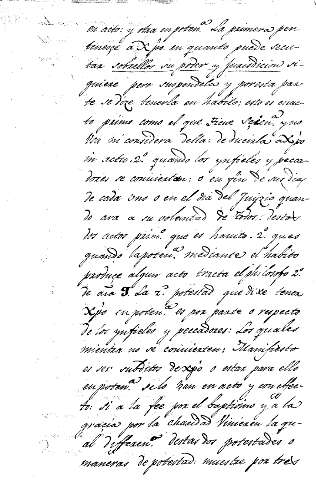 en acto: y otra en poten.ª La primera per
teneze â Xpo en quanto puede execu
tar sobrellos su poder y Jurisdicion si
quiere pero suspendela y por esta par
te se dize tenerla en habito: esto es en ac
to primo como el que tiene y no
ni considera della: deducirla a Xpo
in actu. 2.º quando los ynfieles y peca
dores se convierten: o en fin de sus dias
de cada uno o en el dia del Juyzio quan
do ara a su voluntad de todos: destos
dos actos prim.º que es havito. 2.º ques
quando la poten.ª mediante el habito
produce algun acto tracta el philosofo 2.º
de aîa La 2.ª potestad que dixe tenia
Xpo en poten.ª es por parte o respecto
de los ynfieles y peccadores: Los quales
mientra no se convierten; Manifiesto
es ser subditos de Xpo o estar para ello
en poten.ª selo en acto y con effec
to: si a la fee por el baptismo y â la
gracia por la charidad vinieren la qu
al differen.ª destas dos potestades o
maneras de potestad muestra por tres